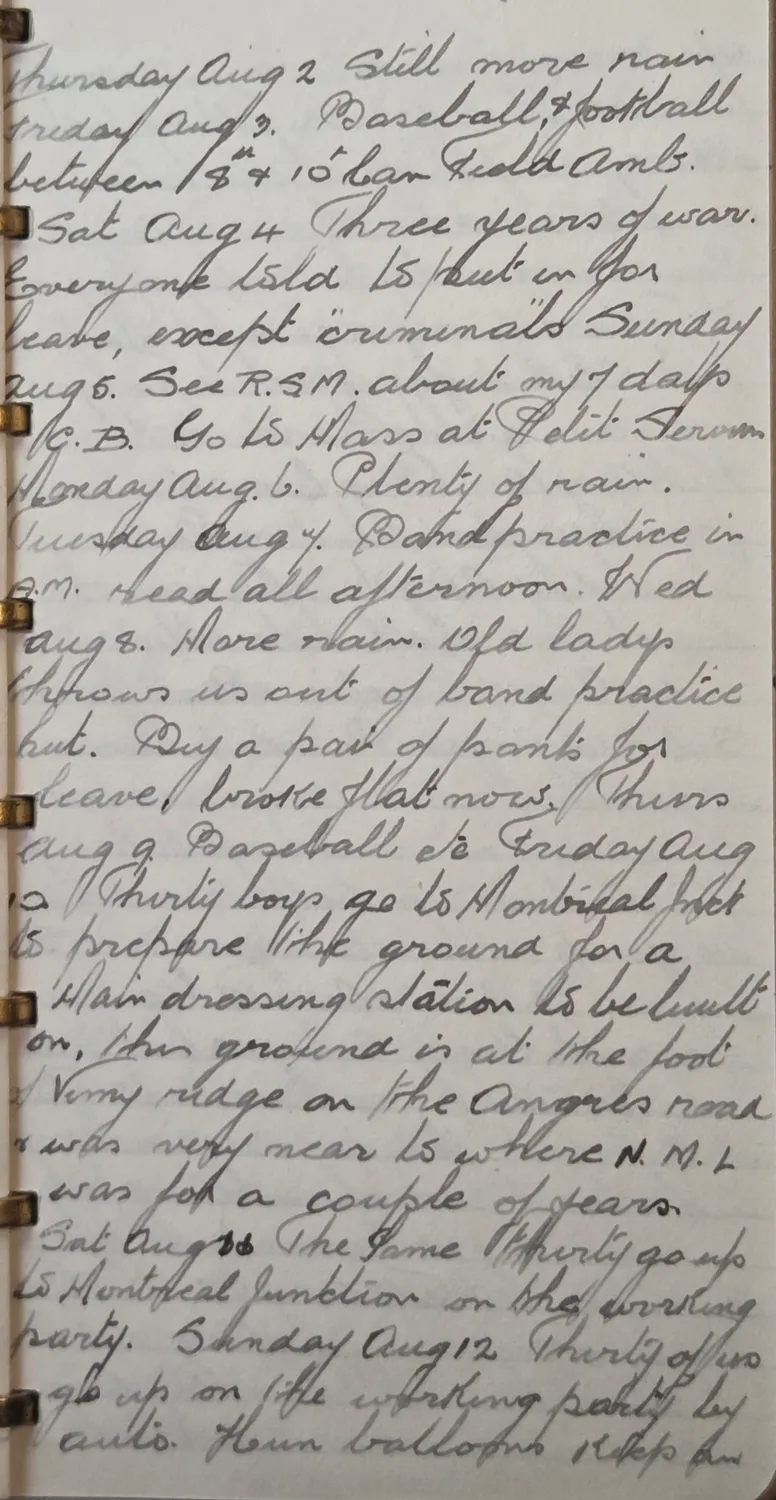 Thursday Aug 2 Still more rain
Friday Aug 3. Baseball, & football
between 8th & 10th Can Field Amb.
Sat Aug 4 Three years of war.
Everyone told to put in for
leave, except "criminals" Sunday
Aug 5. See R.S.M. about my 7 days
C.B. Go to Mass at Petit Servins
Monday Aug. 6. Plenty of rain.
Tuesday Aug 7. Band practice in
A.M. read all afternoon. Wed
Aug 8. More rain. Old lady
throws us out of band practice
hut. Buy a pair of pants for
leave, broke flat now. Thurs
Aug 9. Baseball etc Friday Aug
10 Thirty boys go to Montreal Jnct
to prepare the ground for a
Main dressing station to be built
on, this ground is at the foot
of Vimy ridge on the Angres road
& was very near to where N. M. L
was for a couple of years.
Sat Aug 11 The same thirty go up
to Montreal Junction on the working
party. Sunday Aug 12 Thirty of us
go up on the working party by
auto. Hun balloons keep an